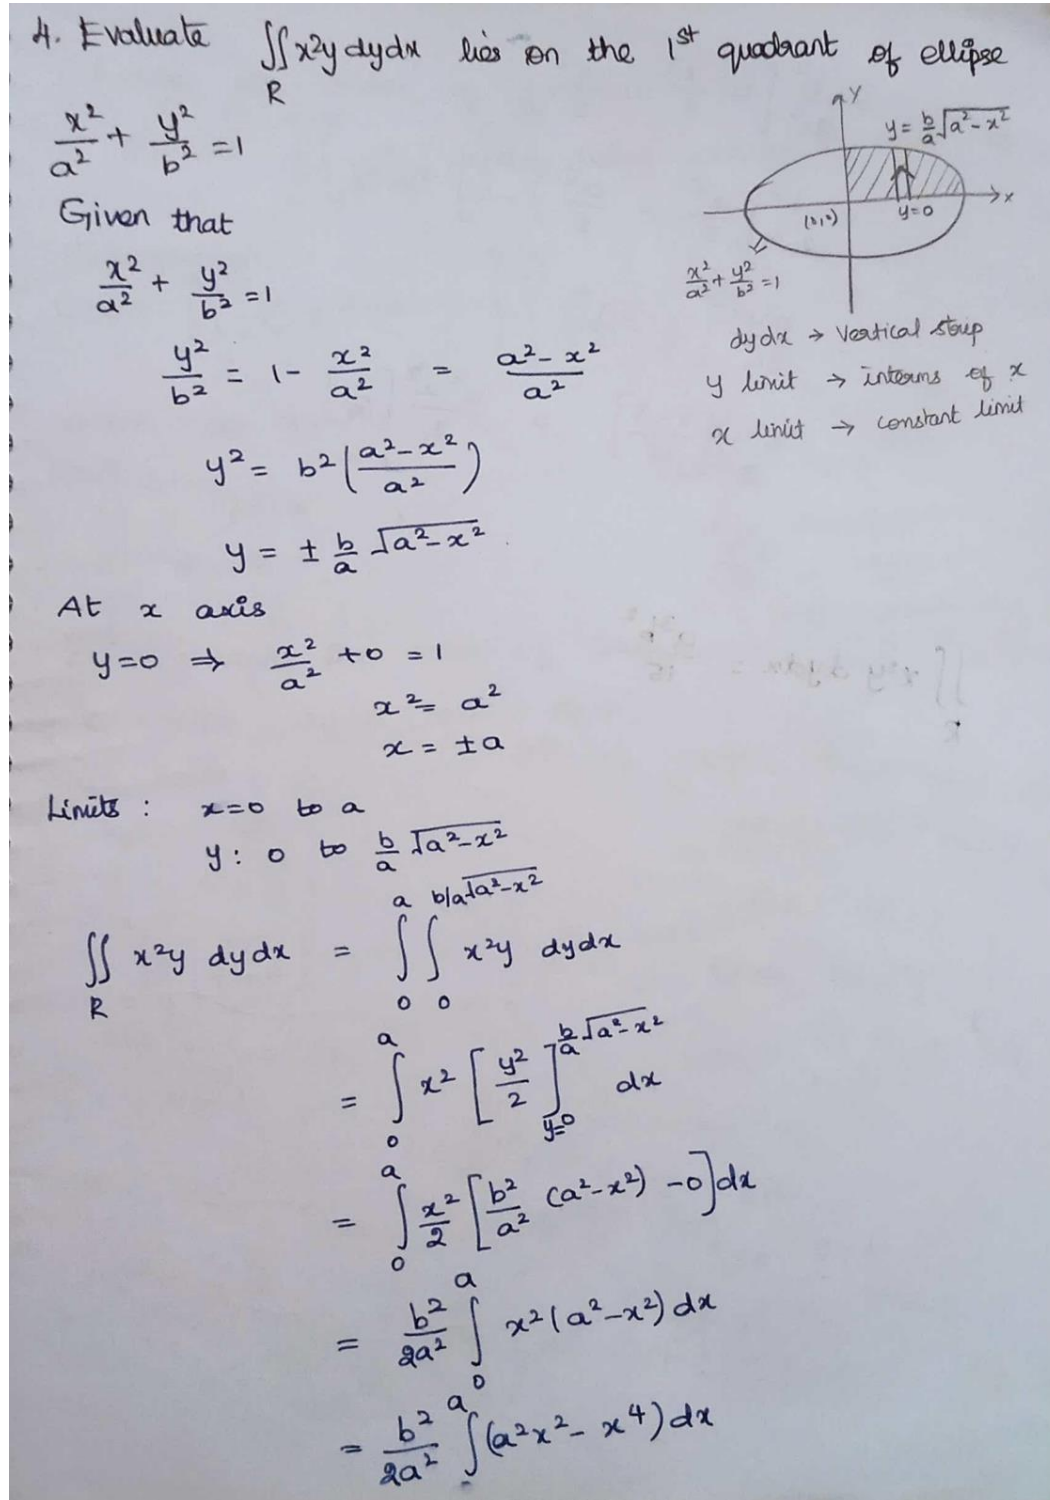 4. Evaluate ∬_R x²y dydx lies on the 1st quadrant of ellipse
x²/a² + y²/b² = 1
Y
y = b/a √(a²-x²)
x
(0,0)
y=0
x²/a² + y²/b² = 1
dydx → Vertical strip
y limit → interms of x
x limit → constant limit
Given that
x²/a² + y²/b² = 1
y²/b² = 1 - x²/a² = (a²-x²)/a²
y² = b² ((a²-x²)/a²)
y = ± b/a √(a²-x²)
At x axis
y=0 ⇒ x²/a² + 0 = 1
x² = a²
x = ±a
Limits : x=0 to a
y : 0 to b/a √(a²-x²)
∬_R x²y dydx = ∫_0^a ∫_0^{b/a √(a²-x²)} x²y dydx
= ∫_0^a x² [y²/2]_{y=0}^{b/a √(a²-x²)} dx
= ∫_0^a x²/2 [b²/a² (a²-x²) - 0] dx
= b²/2a² ∫_0^a x² (a²-x²) dx
= b²/2a² ∫^a (a²x² - x⁴) dx